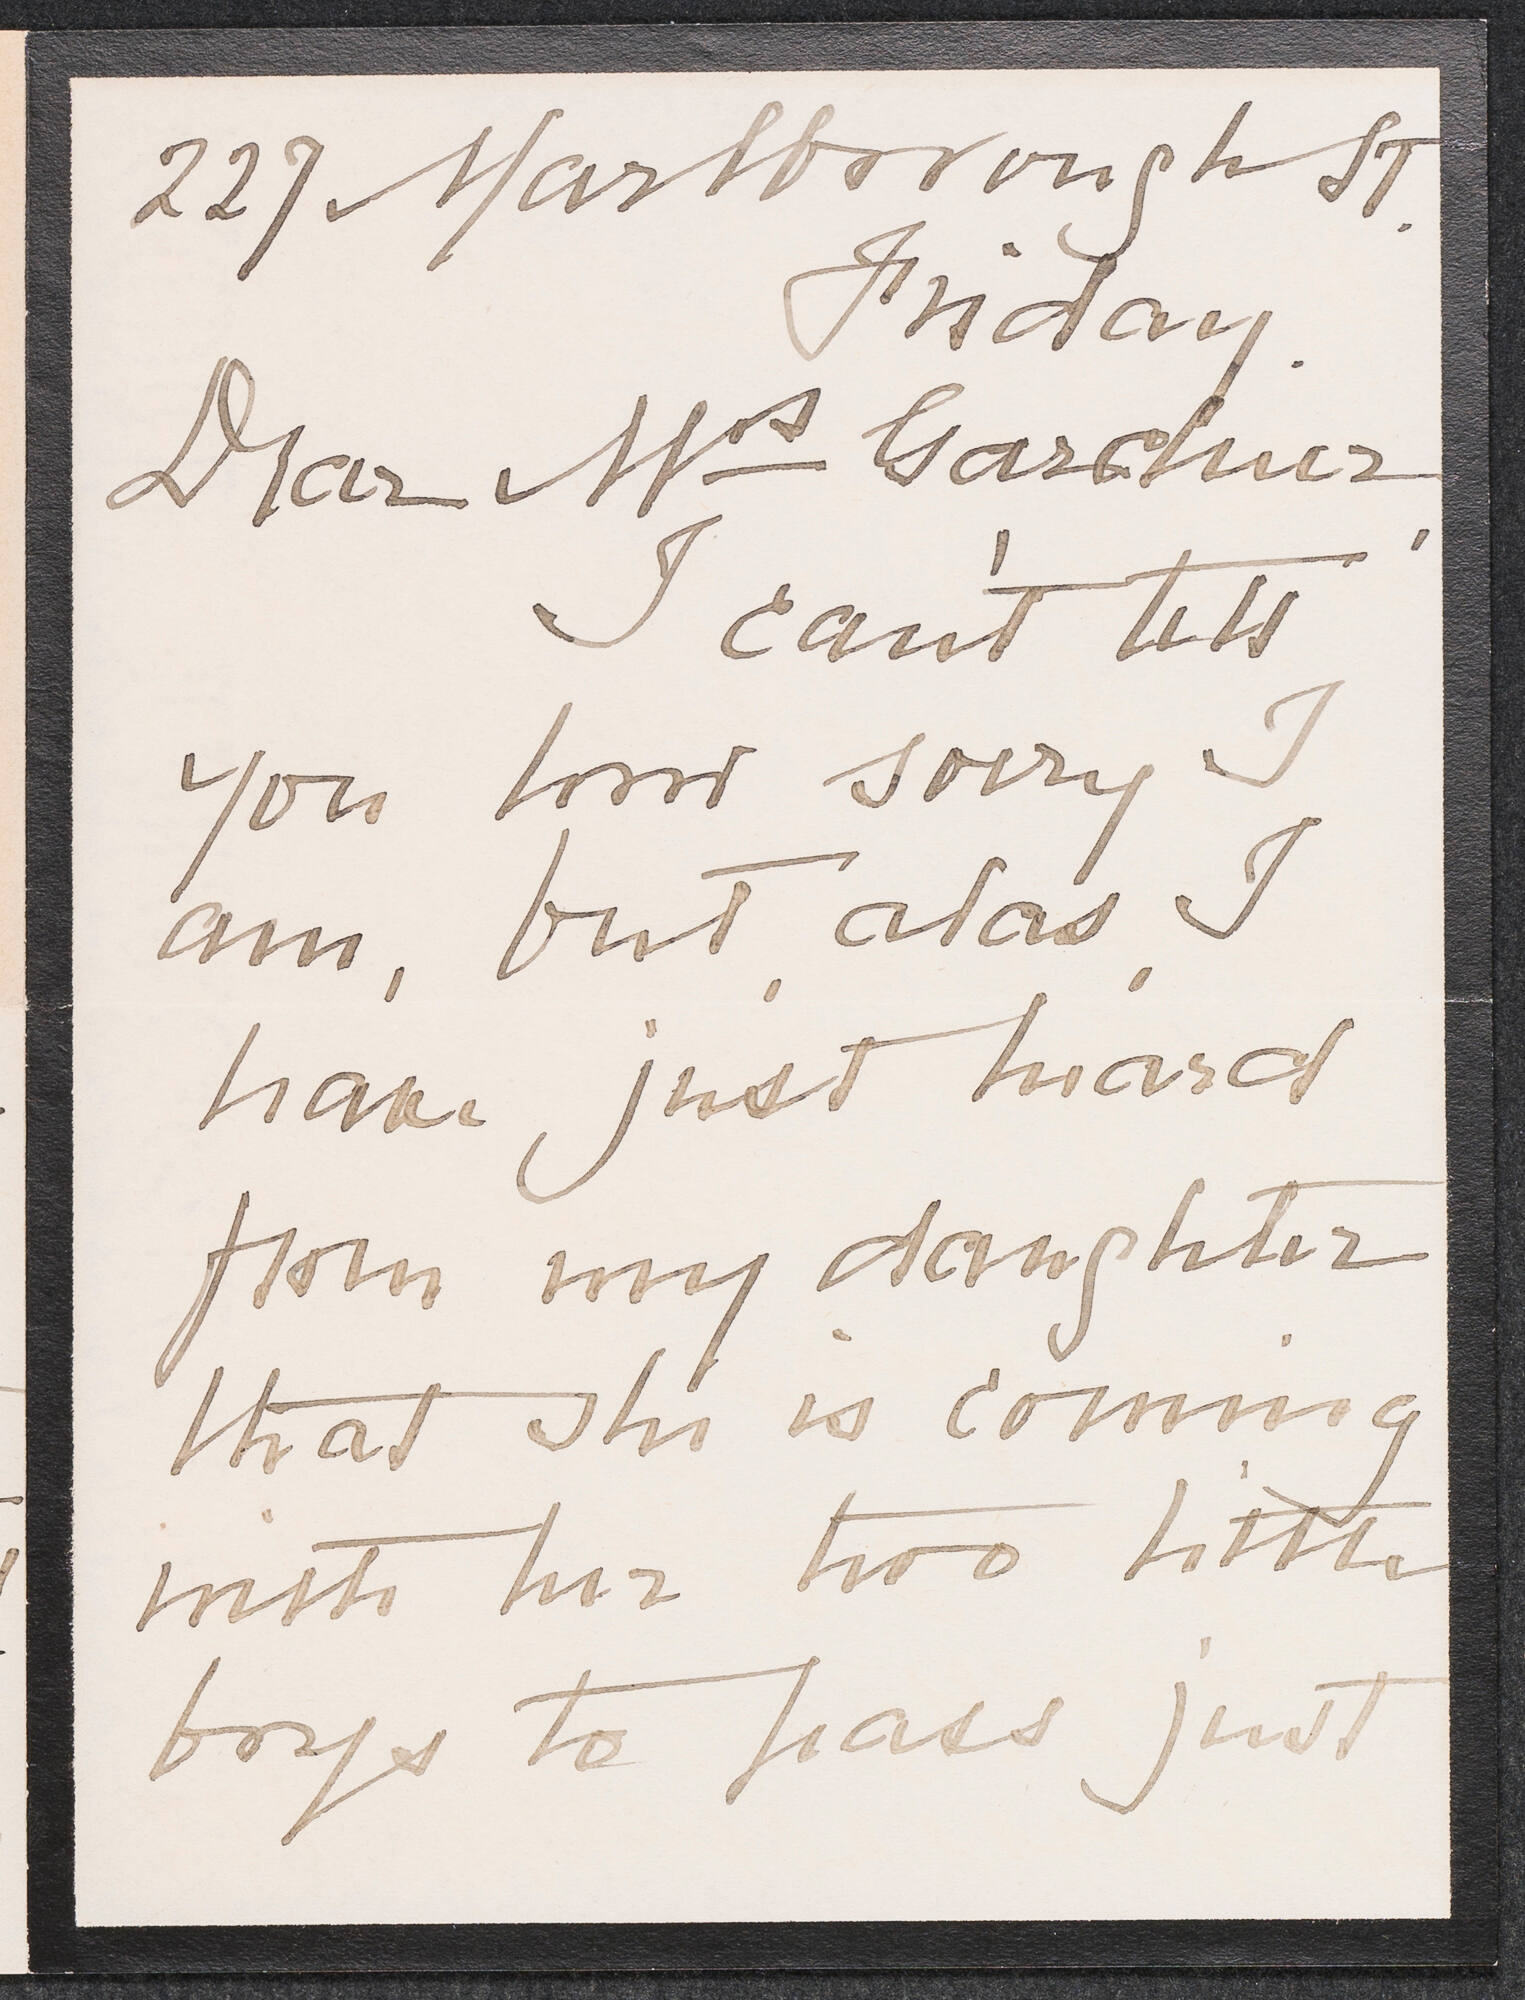 227 Marlborough St.
Friday.
Dear Mrs Gardner,
I can't tell
you how sorry I
am, but, alas, I
have just heard
from my daughter
that she is coming
with her two little
boys to pass just